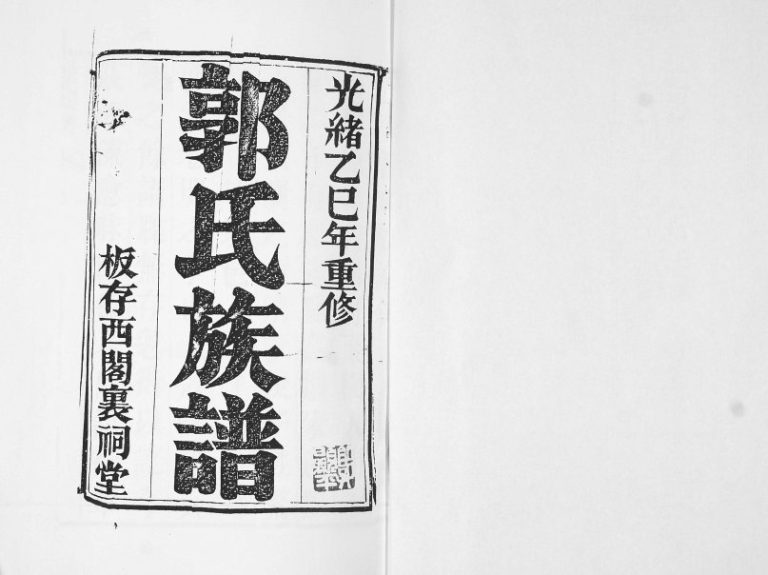 光緒乙巳年重修
郭氏族譜
板存西閣裏祠堂